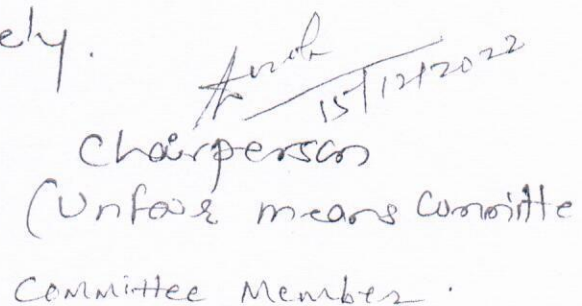 ely.
15/12/2022
Chairperson
(Unfair means Committe
Committee Member.